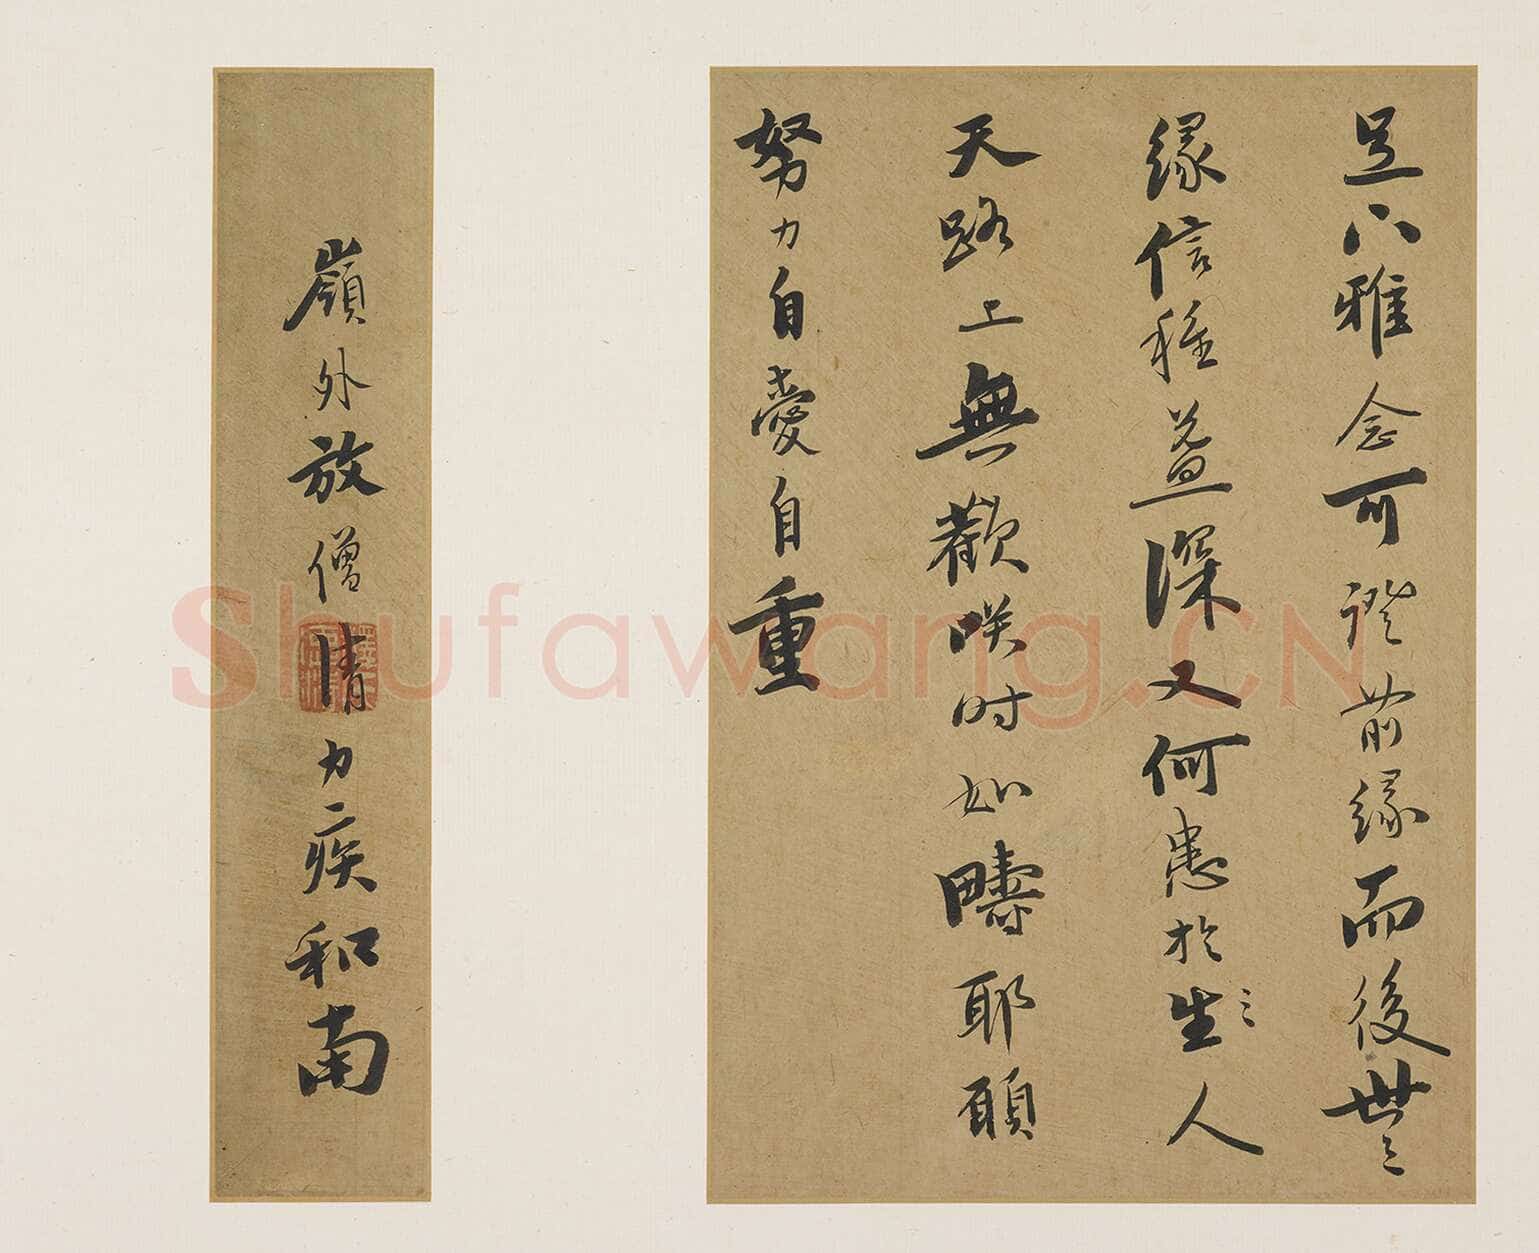 足下雅念可證前緣而後世〻
緣信種益深又何患於生〻人
天路上無歡咲時如疇耶願
努力自愛自重
嶺外放僧清力疾和南
Shufawang.CN